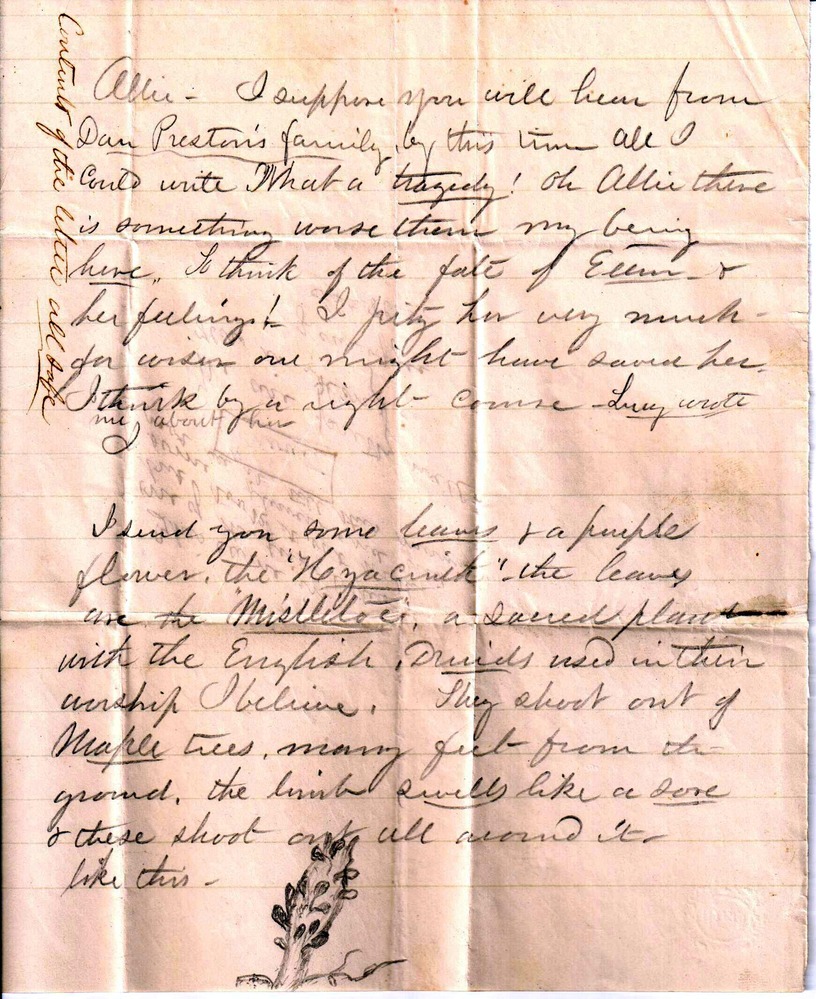 Contents of the letter all safe
Allie - I suppose you will hear from
Dan Preston's family, by this time all I
could write What a tragedy! Oh Allie there
is something worse than my being
here. To think of the fate of &
her feelings! I pity her very much -
one might have saved her.
I think by a right course - Lucy wrote
me about her
I send you some leaves & a purple
flower, the "Hyacinth" - the leaves
are the "Mistletoe", a sacred plant
with the English Druids used in their
worship I believe. They shoot out of
Maple trees, many feet from the
ground, the limb swells like a sore
& these shoot out all around it -
like this -